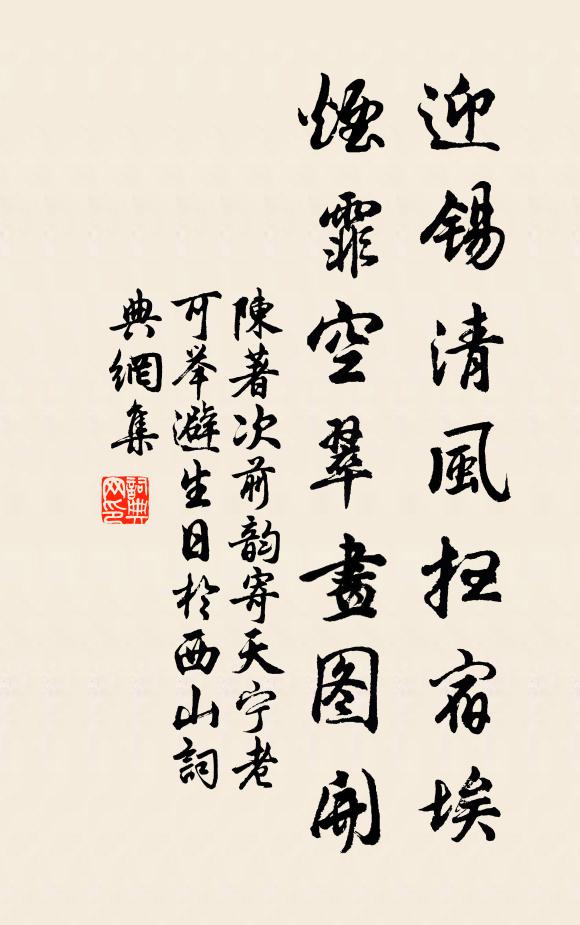 迎锡清風掃宿埃
煙霏空翠畫图開
陳著次前韵寄天宁老
可举避生日於西山詞
典網集
詞典网印